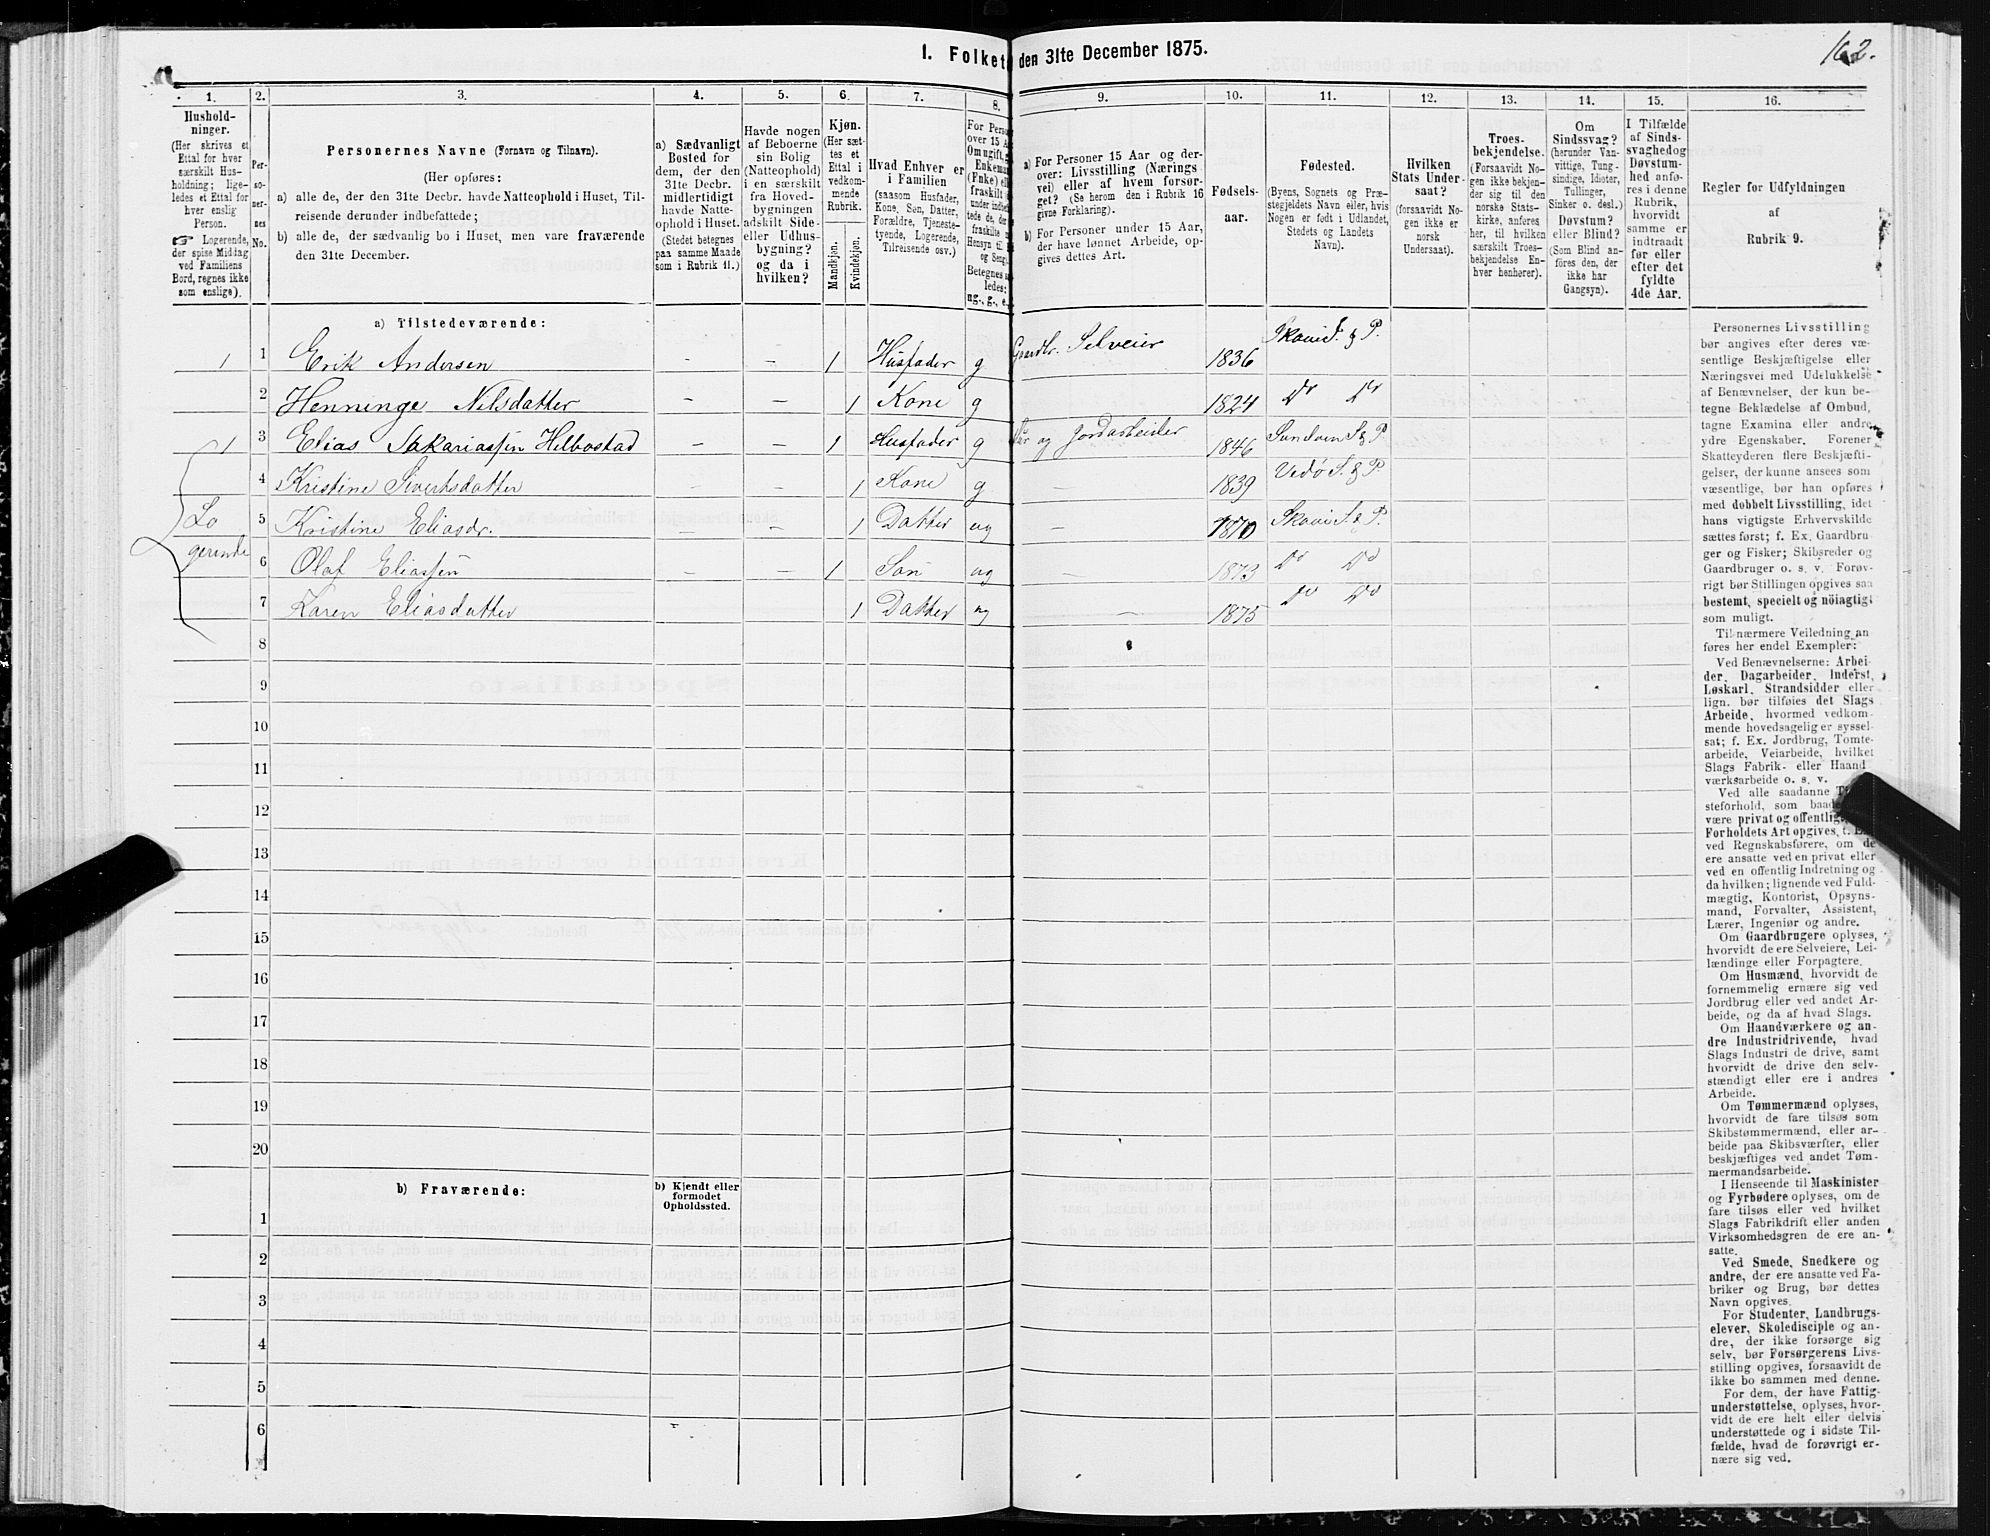 1. Folket
den 31te December 1875.
162.
1.
Hushold-
ninger.
(Her skrives et
Ettal for hver
særskilt Hus-
holdning; lige-
ledes et Ettal for
hver enslig
Person.
Logerende,
der spise Middag
ved Familiens
Bord, regnes ikke
som enslige).
2.
Per-
so-
ner-
nes
No.
3.
Personernes Navne (Fornavn og Tilnavn).
(Her opføres:
a) alle de, der den 31te Decbr. havde Natteophold i Huset, Til-
reisende derunder indbefattede;
b) alle de, der sædvanlig bo i Huset, men vare fraværende
den 31te December.
4.
a) Sædvanligt
Bosted for
dem, der den
31te Decbr.
midlertidigt
havde Natte-
ophold i Huset.
(Stedet betegnes
paa samme Maade
som i Rubrik 11.)
5.
Havde nogen
af Beboerne
sin Bolig
(Natteophold)
i en særskilt
fra Hoved-
bygningen
adskilt Side-
eller Udhus-
bygning?
og da i
hvilken?
6.
Kjøn.
(Her sæt-
tes et
Ettal i
vedkom-
mende
Rubrik.
Mandkjøn.
Kvindekjøn.
7.
Hvad Enhver er
i Familien
(saasom Husfader,
Kone, Søn, Datter,
Forældre, Tjeneste-
tyende, Logerende,
Tilreisende osv.)
8.
For Pers
over 15 A
Om ugift, g
Enkema
(Enke) el
fraskilt
under indbe
tede de, der
fraskilte
Hensyn til
og Seng
Betegnes s
ledes:
ug., g., e.
9.
a) For Personer 15 Aar og der-
over: Livsstilling (Nærings
vei) eller af hvem forsør-
get? (Se herom den i Rubrik 16
givne Forklaring).
b) For Personer under 15 Aar,
der have lønnet Arbeide, op-
gives dettes Art.
10.
Fødsels-
aar.
11.
Fødested.
(Byens, Sognets og Præ-
stegjeldets Navn eller, hvis
Nogen er født i Udlandet,
Stedets og Landets
Navn).
12.
Hvilken
Stats Under-
saat?
(forsaavidt No-
gen ikke er
norsk
Undersaat).
13.
Troes-
bekjendelse.
(Forsaavidt No-
gen ikke bekjen-
der sig til den
norske Stats-
kirke, anføres
her, til hvilken
særskilt Troes-
bekjendelse En-
hver henhører).
14.
Om
Sindssvag?
(herunder Van-
vittige, Tung-
sindige, Idioter,
Tullinger,
Sinker o. desl.)
Døvstum?
eller Blind?
(Som Blind an-
føres den, der
ikke har
Gangsyn).
15.
I Tilfælde
af Sinds-
svaghed og
Døvstum-
hed anfø-
res i denne
Rubrik,
hvorvidt
samme er
indtraadt
før eller
efter det
fyldte
4de Aar.
16.
Regler for Udfyldningen
af
Rubrik 9.
a) Tilstedeværende:
1 1 Erik Andersen - - 1 Husfader g Gaardbr. Selveier 1836 Skovi S. & P.
2 Henninge Nilsdatter - - 1 Kone g 1824 Do Do
1 3 Elias Sakariassen Helbostad - - 1 Husfader g og Jordarbeider 1846 S & P.
4 Kristine Sivertsdatter 1 Kone g - 1839 Vedø S. & P.
Lo
gerende
5 Kristine Eliasdr. - - 1 Datter ug - 1870 Skovi S. & P.
6 Olaf Eliassen - - 1 Søn ug - 1873 Do Do
7 Karen Eliasdatter 1 Datter ug - 1875 Do Do
8
9
10
11
12
13
14
15
16
17
18
19
20
b) Fraværende:
b) Kjendt eller
formodet
Opholdssted.
1
2
3
4
5
6
Personernes Livsstilling
bør angives efter deres væ-
sentlige Beskjæftigelse eller
Næringsvei med Udelukkelse
af Benævnelser, der kun be-
tegne Beklædelse af Ombud,
tagne Examina eller andre
ydre Egenskaber. Forener
Skatteyderen flere Beskjæfti-
gelser, der kunne ansees som
væsentlige, bør han opføres
med dobbelt Livsstilling, idet
hans vigtigste Erhvervskilde
sættes først; f. Ex. Gaardbru-
ger og Fisker; Skibsreder og
Gaardbruger o. s. v. Forøv-
rigt bør Stillingen opgives saa
bestemt, specielt og nøiagtigt
som muligt.
Til nærmere Veiledning an
føres her endel Exempler:
Ved Benævnelserne: Arbei-
der, Dagarbeider, Inderst,
Løskarl, Strandsidder eller
lign. bør tilføies det Slags
Arbeide, hvormed vedkom-
mende hovedsagelig er syssel-
sat; f. Ex. Jordbrug, Tomte-
arbeide, Veiarbeide, hvilket
Slags Fabrik- eller Haand
værksarbeide o. s. v.
Ved alle saadanne
steforhold, som baade
være privat og offentlig,
Forholdets Art opgives, f. Ex.
ved Regnskabsførere, om de
ere ansatte ved en privat eller
ved en offentlig Indretning og
da hvilken; lignende ved Fuld-
mægtig, Kontorist, Opsyns-
mand, Forvalter, Assistent,
Lærer, Ingeniør og andre.
Om Gaardbrugere oplyses,
hvorvidt de ere Selveiere, Lei-
lændinge eller Forpagtere.
Om Husmænd, hvorvidt de
fornemmelig ernære sig ved
Jordbrug eller ved andet Ar-
beide, og da af hvad Slags.
Om Haandværkere og an-
dre Industridrivende, hvad
Slags Industri de drive, samt
hvorvidt de drive den selv-
stændigt eller ere i andres
Arbeide.
Om Tømmermænd oplyses,
hvorvidt de fare tilsøs som
Skibstømmermænd, eller ar-
beide paa Skibsværfter, eller
beskjæftiges ved andet Tøm-
mermandsarbeide.
I Henseende til Maskinister
og Fyrbødere oplyses, om de
fare tilsøs eller ved hvilket
Slags Fabrikdrift eller anden
Virksomhedsgren de ere an-
satte.
Ved Smede, Snedkere og
andre, der ere ansatte ved Fa-
briker og Brug, bør dettes
Navn opgives.
For Studenter, Landbrugs-
elever, Skoledisciple og an-
dre, der ikke forsørge sig
selv, bør Forsørgerens Livs-
stilling opgives, forsaavidt de
ikke bo sammen med denne.
For dem, der have Fattig-
understøttelse, oplyses, hvor-
vidt de ere helt eller delvis
understøttede og i sidste Til-
fælde, hvad de forøvrigt er-
nære sig ved.